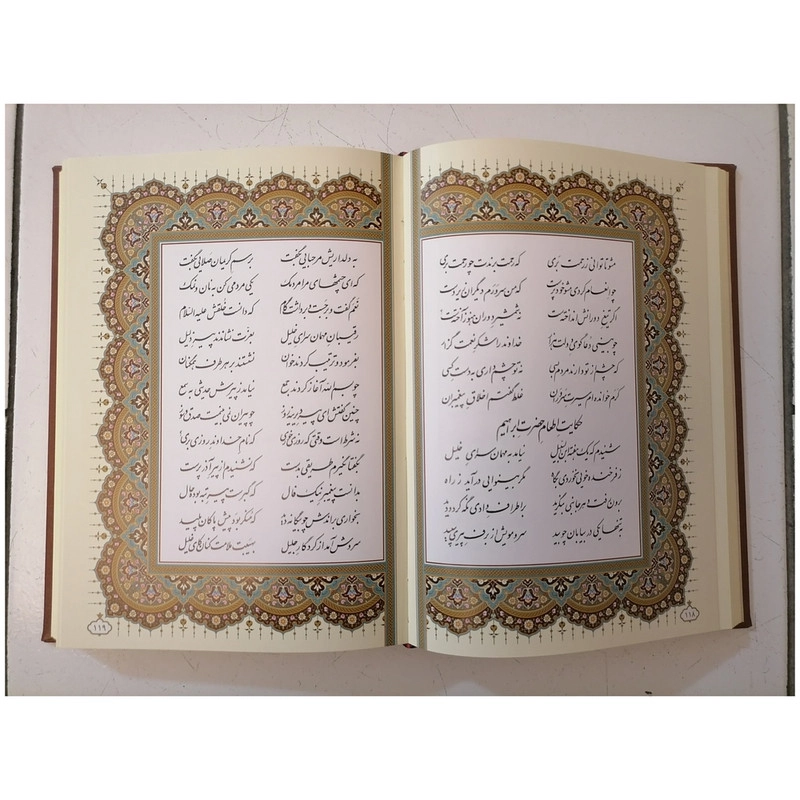 مشو تا توانی ز رحمت بری که رحمت برندت چو رحمت بری
چو انعام کردی مشو خودپرست که من سرورم دیگران زیردست
اگر تیغ دورانش انداخته‌ست نه شمشیر دوران هنوز آخته‌ست
چو بینی دعاگوی دولت هزار خداوند را شکر نعمت گزار
که چشم از تو دارند مردم بسی نه تو چشم داری به دست کسی
کرم خوانده‌ام سیرت سروران غلط گفتم اخلاق پیغمبران
حکایت اطعام حضرت ابراهیم
شنیدم که یک هفته ابن‌السبیل نیامد به مهمان سرای خلیل
ز فرخنده خویی نخوردی بگاه مگر بینوایی درآید ز راه
برون رفت و هر جانبی بنگرید بر اطراف وادی نگه کرد و دید
به تنها یکی در بیابان چو بید سر و مویش از برف پیری سپید
۱۱۸
به دلداریش مرحبایی بگفت برسم کریمان صلایی بگفت
که ای چشمهای مرا مردمک یکی مردمی کن به نان و نمک
نعم گفت و برجست و برداشت گام که دانست خلقش علیه السلام
رقیبان مهمان سرای خلیل بعزت نشاندند پیر ذلیل
بفرمود و ترتیب کردند خوان نشستند بر هر طرف همگنان
چو بسم الله آغاز کردند جمع نیامد ز پیرش حدیثی به سمع
چنین گفتش ای پیر دیرینه روز چو پیران نمی بینمت صدق و سوز
نه شرط است وقتی که روزی خوری که نام خداوند روزی بری
بگفتا نگیرم طریقی بدست که نشنیدم از پیر آذرپرست
بدانست پیغمبر نیک فال که گبرست پیر تبه بوده حال
بخواری براندش چو بیگانه دید که منکر بود پیش پاکان پلید
سروش آمد از کردگار جلیل بهیبت ملامت کنان کای خلیل
۱۱۹